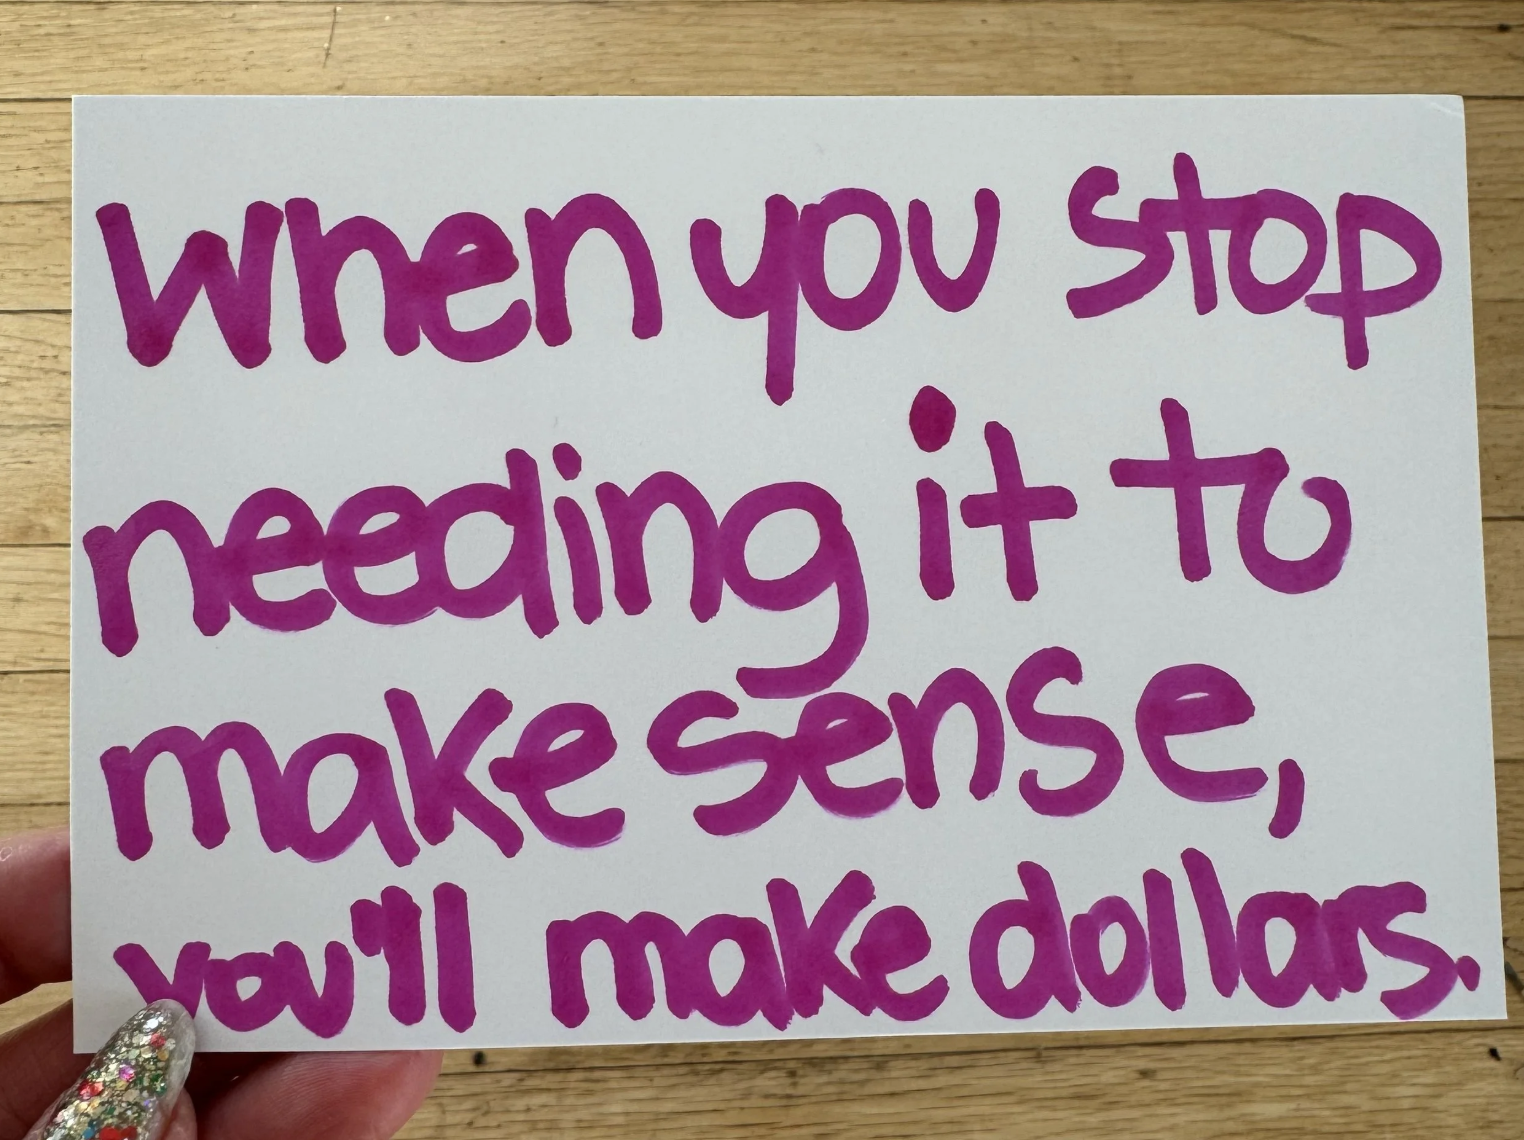 When you stop
needing it to
make sense,
you'll make dollars.